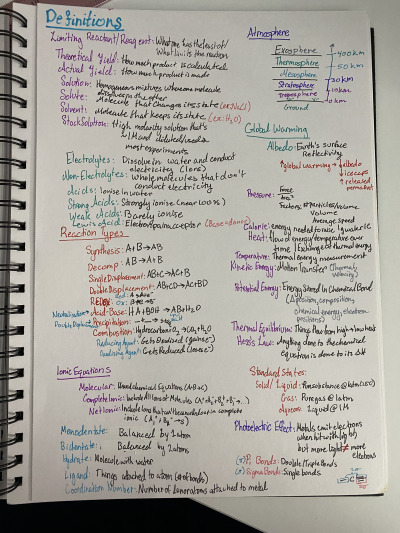 Definitions
Limiting Reactant/Reagent: What one has the least of/
What limits the reaction
Theoretical Yield: How much product is calculated
Actual Yield: How much product is made
Solution: Homogeneous mixture where one molecule
dissolves in the other
Solute: Molecule that changes its state (ex: NaCl)
Solvent: Molecule that keeps its state (ex: H₂O)
Stock Solution: High molarity solution that's
diluted/used in
most experiments
Electrolytes: Dissolve in water and conduct
electricity (ions)
Non-Electrolytes: Whole molecules that don't
conduct electricity
Acids: Ionise in water
Strong Acids: Strongly ionise (near 100%)
Weak Acids: Barely ionise
Lewis acid: Electron pair acceptor (Base = donor)
Reaction Types
Synthesis: A+B→AB
Decomp: AB→A+B
Single Displacement: AB+C→AC+B
Double Displacement: AB+CD→AC+BD
REDOX:
Neutralisation Acid-Base: HA+BOH→AB+H₂O
Double Replace Precipitation:
Combustion: Hydrocarbon+O₂→CO₂+H₂O
Reducing Agent: Gets Oxidised (gains e⁻)
Oxidising Agent: Gets Reduced (loses e⁻)
Ionic Equations
Molecular: Chemical Equations (A+B→C)
Complete Ionic: Include All Ions of Molecules
Net Ionic: Include Ions that in complete
ionic
Monodentate: Balanced by 1 atom
Bidentate: Balanced by 2 atoms
Hydrate: Molecule with water
Ligand: Things attached to atom (# of bonds)
Coordination Number: Number of attached to metal
Atmosphere
Exosphere 400km
Thermosphere 50km
Mesosphere 30km
Stratosphere 10km
Troposphere 0km
Ground
Global Warming
Albedo: Earth's surface
Reflectivity
↑global warming = ↓albedo
↓icecaps
↑released
permafrost
Pressure: Force
Factors: # Particles/Volume
Volume
Average speed
Calorie: energy needed to raise 1g water 1C
Heat: flow of energy/temperature over
time | Exchange of thermal energy
Temperature: Thermal energy measurement
Kinetic Energy: Motion Transfer (Thermal,
Potential Energy: Energy Stored in Chemical Bond
(position, composition,
chemical energy, electron
positions)
Thermal Equilibrium: Things flow from high→lowest
Hess's Law: Anything done to the chemical
Equation is done to its ΔH
Standard States:
Solid/Liquid: Pure substance @ 1atm (25C)
Gas: Pure gas @ 1atm
Aqueous: Liquid @ 1M
Photoelectric Effect: Metals emit electrons
when hit with light
but more light ≠ more
electrons
(π) Pi Bonds: Double/Triple Bonds
(σ) Sigma Bonds: Single bonds